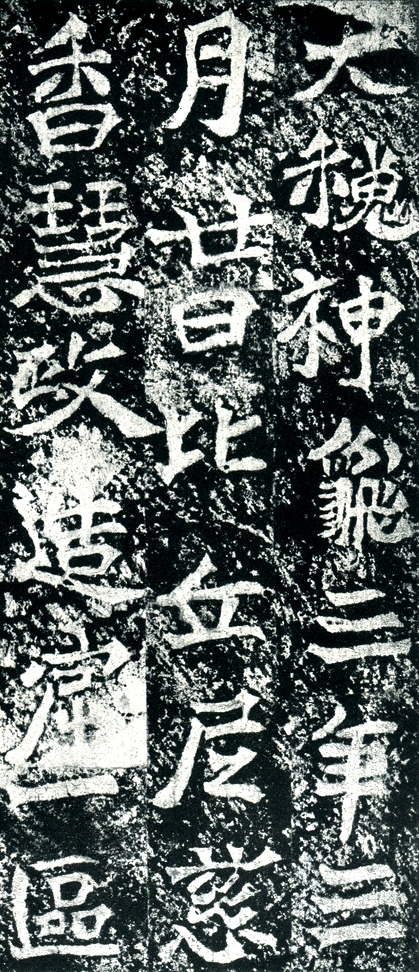 大魏神龜三年三
月廿日比丘尼慈
香慧政造窟一區